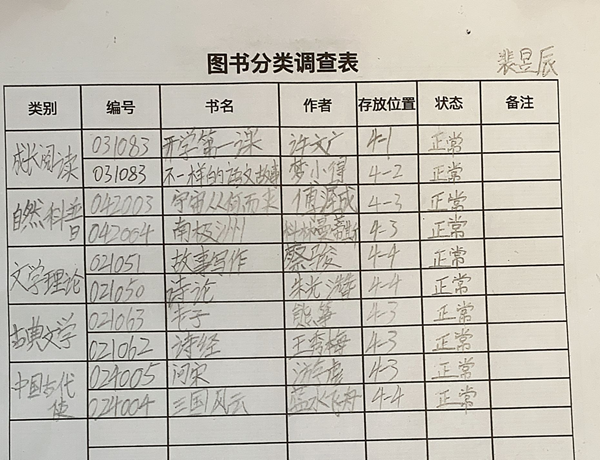 图书分类调查表
裴昱辰
类别 编号 书名 作者 存放位置 状态 备注
成长阅读 031083 开学第一课 许文广 4-1 正常
031083 不一样的语文故事 梦小得 4-2 正常
自然科普 042003 宇宙从何而来 傅渥成 4-3 正常
042004 南极洲 4-3 正常
文学理论 021051 故事写作 蔡骏 4-4 正常
021050 诗论 朱光潜 4-4 正常
古典文学 021063 熊等 4-3 正常
021062 诗经 王秀梅 4-3 正常
中国古代 024005 问宋 4-3 正常
使 024004 三国风云 4-4 正常